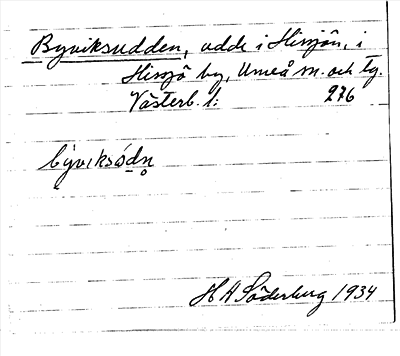 Byviksudden, udde i Hissjön, i
Hissjö by, Umeå sn. och tg.
Västerb. l: 276
býviksódn̥
H A Söderberg 1934